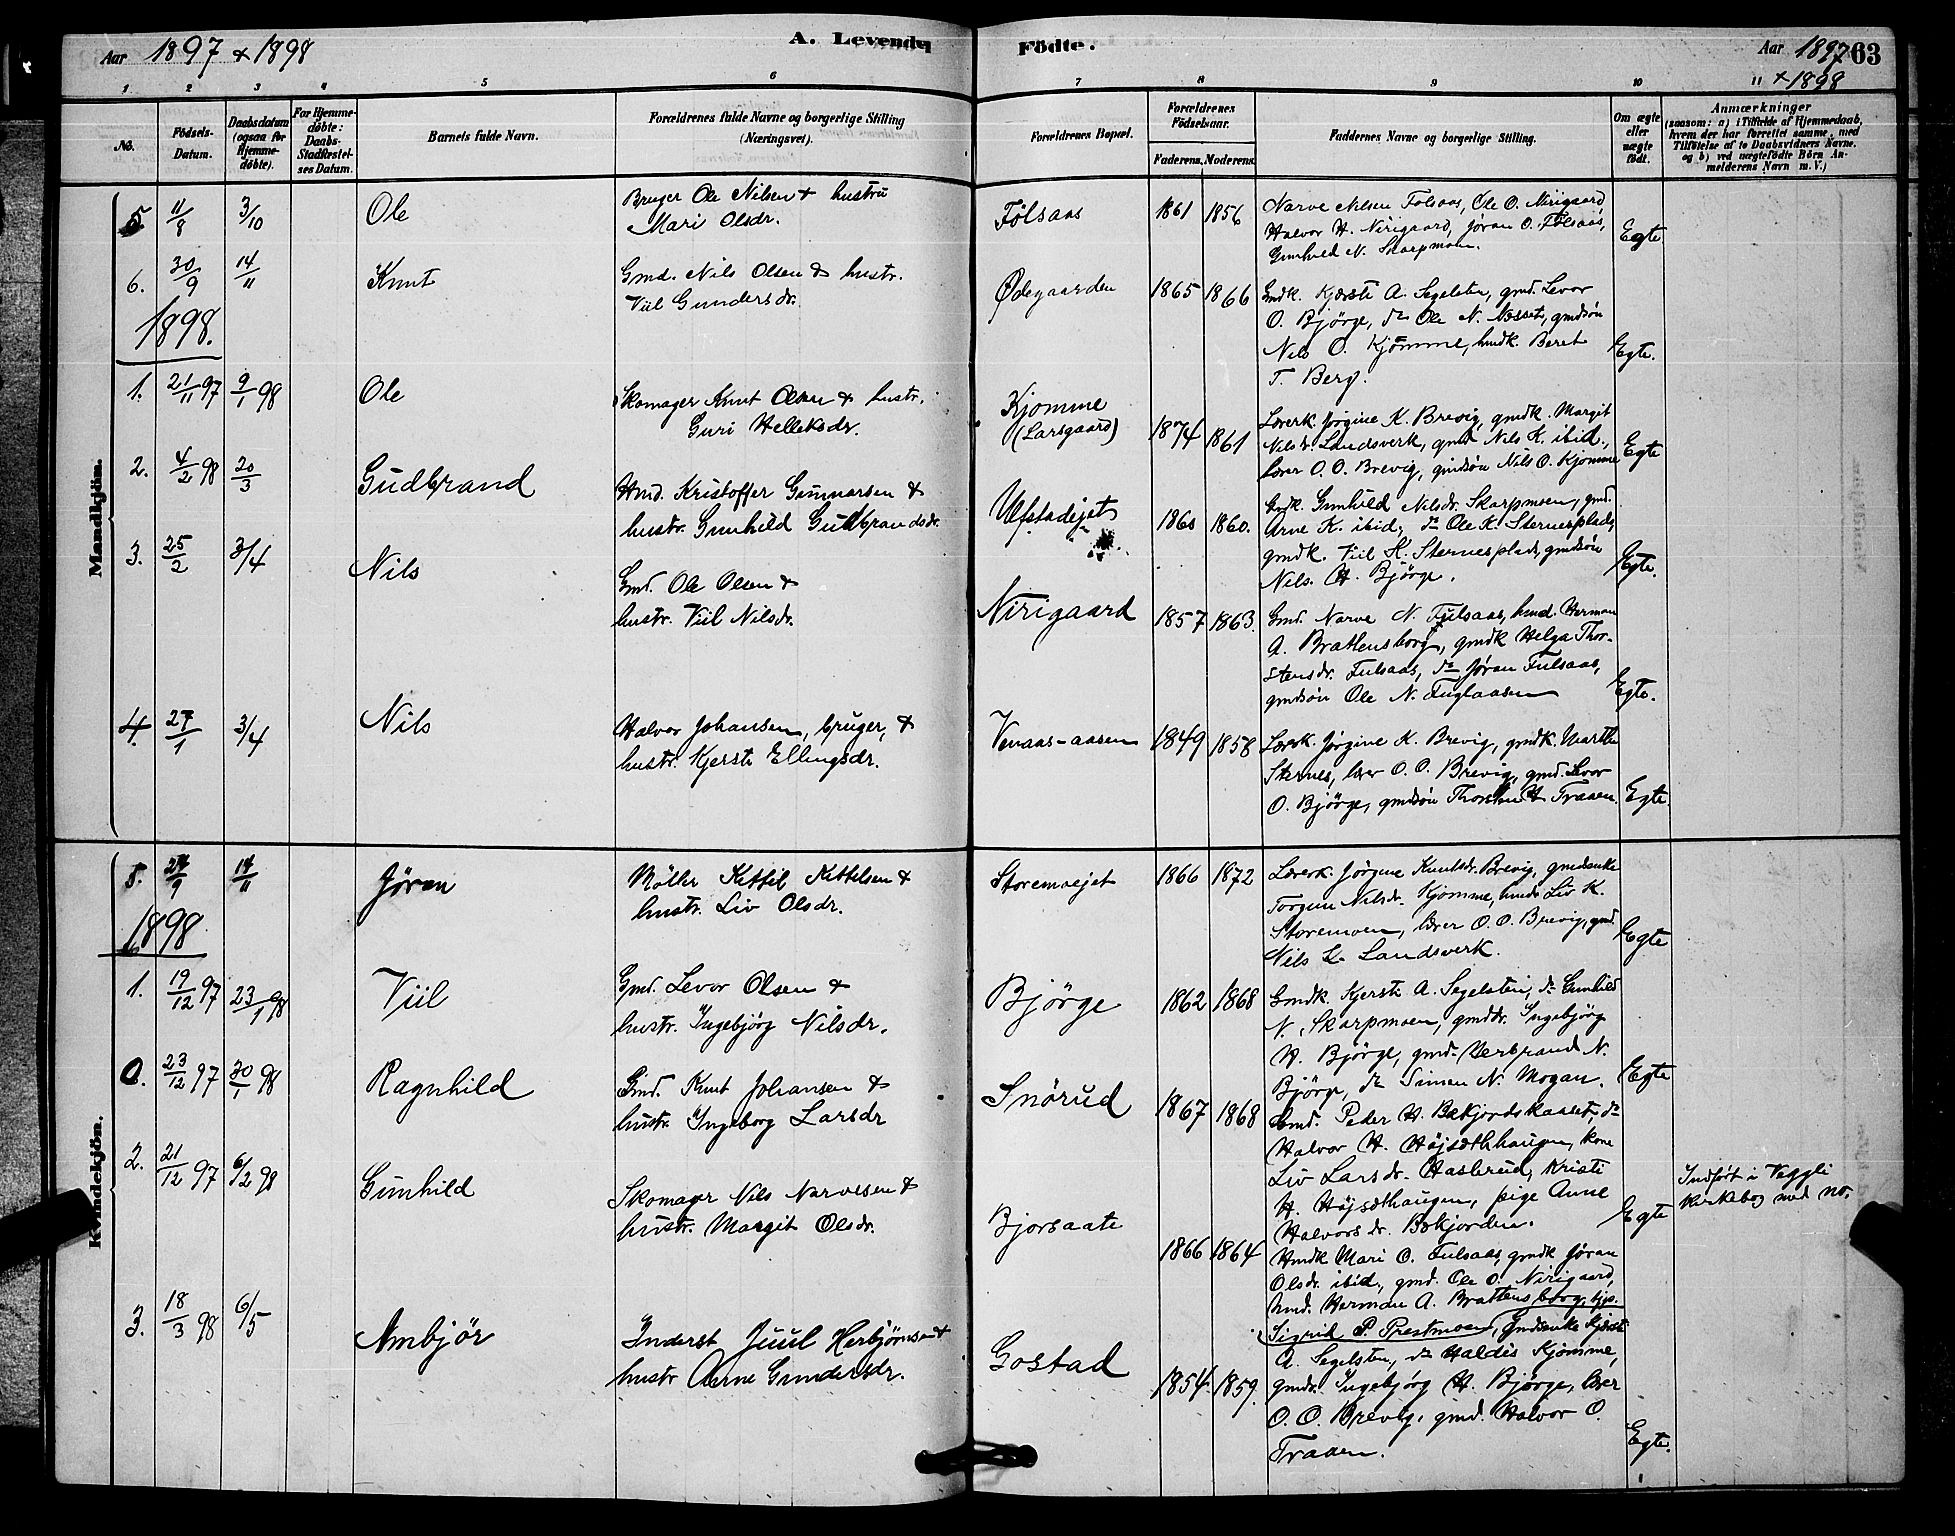 Aar 1897 & 1898
A. Levende
Födte.
Aar 1897 63
& 1898
1 2 3 4 5 6 7 8 9 10 11
No.
Födsels-
Datum.
Daabsdatum
(ogsaa for
Hjemme-
döbte).
For Hjemme-
döbte:
Daabs-
Stadfæstel-
ses Datum.
Barnets fulde Navn.
Forældrenes fulde Navne og borgerlige Stilling
(Næringsvei).
Forældrenes Bopæl.
Forældrenes
Födselsaar.
Faderens. Moderens.
Faddernes Navne og borgerlige Stilling.
Om ægte
eller
uægte
födt.
Anmærkninger
(saasom: a) i Tilfælde af Hjemmedaab,
hvem der har forrettet samme, med
Tilföielse af to Daabsvidners Navne.
og b) ved uægtefödte Börn An-
melderens Navn m. V.)
Mandkjön.
5 11/8 3/10 Ole
Bruger Ole Nilsen & hustru
Mari Olsdr.
Fölsaas 1861 1856
Narve Nilsen Fölsaas, Ole O. Nirigaard
Halvor H. Nirigaard, Jøran O. Følsaas,
Gunhild N. Skarpmoen.
Egte
6. 30/9 14/11 Knut
Gmd. Nils Olsen & hustr.
Viil Gundersdr.
Ødegaarden 1865 1866
Gmdk. Kjersti A. Segelsten, gmd. Levor
O. Bjørge, do Ole N. Næsset, gmdsøn
Nils O. Kjømme, hmdk. Beret
T. Berg.
Egte.
1898.
1. 21/11 97 9/1 98 Ole
Skomager Knut Olsen & hustr.
Guri Helleksdr.
Kjømme
(Larsgaard)
1874 1861
Lærerk. Jørgine K. Brevig, gmdk. Margit
Nilsdr. Landsverk, gmd Nils K. ibid.,
lærer O. O. Brevig, gmdsøn Nils O. Kjomme
Egte
2. 4/2 98 20/3 Gudbrand
Hmd. Kristoffer Gunnarsen &
hustr. Gunhild Gudbrandsdr.
Ulfstadejet 1860 1860.
Gmdk. Gunhild Nilsdr. Skarpmoen, gmd.
Arne K. ibid., do Ole K. Sternesplads,
gmdk. Viil H. Sternesplads, gmdsøn
Nils H. Bjørge.
Egte.
3. 25/2 3/4 Nils
Gmd. Ole Olsen &
hustr. Viil Nilsdr.
Nirigaard 1857 1863.
Gmd. Narve N. Fulsaas, hmd. Herman
A. Brattensborg, gmdk Helga Thor-
stensdr. Fulsaas, do Jøran Fulsaas,
gmdsøn Ole N. Fuglaasen
Egte.
4. 27/1 3/4 Nils
Halvor Johansen, bruger, &
hustr. Kjersti Ellingsdr.
Venaas-aasen 1849 1858
Lærerk. Jørgine K. Brevig, gmdk. Marthe
Sternes, lærer O. O. Brevig, gmd. Levor
O. Bjørge, gmdsøn Thorsten H Traaen.
Egte
Kvindekjön.
5. 24/9 14/11 Jøran
Møller Kittil Kittelsen &
hustr. Liv Olsdr.
Storemoejet 1866 1872
Lærerk. Jørgine Knutsdr. Brevig, gmdsenke
Torgun Nilsdr. Kjomme, hmdk Liv K.
Storemoen, lærer O. O. Brevig, gmd.
Nils K. Landsverk.
Egte
1898
1. 19/12 97 23/1 98 Viil
Gmd. Levor Olsen &
hustr. Ingebjörg Nilsdr.
Bjørge 1862 1868
Gmdk. Kjersti A. Segelsten, do Gunhild
N. Skarpmoen, gmddr. Ingebjörg
H. Bjørge, gmd. Herbrand N.
Bjørge, do Simen N. Mogan.
Egte
0. 23/12 97 30/1 98 Ragnhild
Gmd. Knut Johansen &
hustr. Ingeborg Larsdr
Snørud 1867 1868
Gmd. Peder H. Bekjordskaaset, do
Halvor H. Højsethhaugen, kone
Liv Larsdr. Haslerud, Kristi
H. Højsethaugen, pige Anne
Halvorsdr. Bekjorden.
Egte
Indført i Veggli
kirkebog med no.
2. 21/12 97 6/2 98 Gunhild
Skomager Nils Narvesen &
hustr. Margit Olsdr.
Bjorsaate 1866 1864
Hmdk Mari O. Fulsaas, gmdk Jøran
Olsdr. ibid., gmd. Ole O. Nirigaard,
hmd. Herman A. Brattensborg, tjp.
Sigrid P. Prestmoen,
3. 18/3 98 6/5 Ambjör
Inderst Juul Herbjørnsen &
hustr Anne Gundersdr.
Gostad 1854. 1859.
Gmdsenke Kjersti
A. Segelsten, do Haldis Kjømme,
gmddr. Ingebjörg H. Bjørge, lærer
O. O. Brevig, gmd. Halvor O.
Traaen.
Egte.